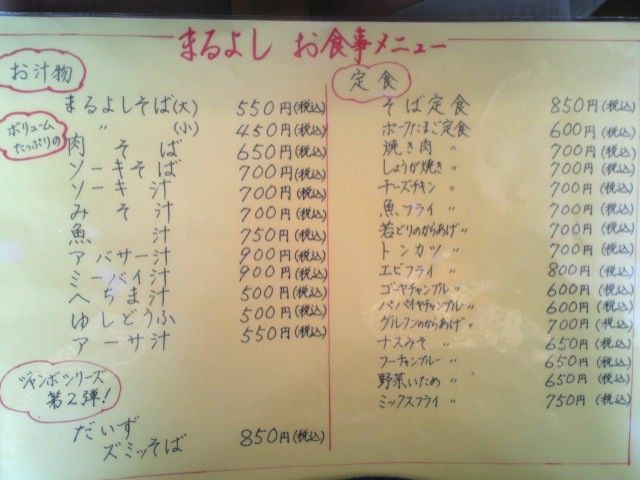 まるよし お食事メニュー
お汁物
まるよしそば(大) 550円(税込)
〃 (小) 450円(税込)
ボリューム
たっぷりの
肉そば 650円(税込)
ソーキそば 700円(税込)
ソーキ汁 700円(税込)
みそ汁 700円(税込)
魚汁 750円(税込)
アバサー汁 900円(税込)
ミーバイ汁 900円(税込)
へちま汁 500円(税込)
ゆしどうふ 500円(税込)
アーサ汁 550円(税込)
ジャンボシリーズ
第2弾!
だいず
ズミッそば 850円(税込)
定食
そば定食 850円(税込)
ポークたまご定食 600円(税込)
焼き肉 〃 700円(税込)
しょうが焼き 〃 700円(税込)
チーズチキン 〃 700円(税込)
魚フライ 〃 700円(税込)
若どりのからあげ 〃 700円(税込)
トンカツ 〃 700円(税込)
エビフライ 〃 800円(税込)
ゴーヤチャンプルー 〃 600円(税込)
パパイヤチャンプルー 〃 600円(税込)
グルクンのからあげ 〃 700円(税込)
ナスみそ 〃 650円(税込)
フーチャンプルー 〃 650円(税込)
野菜いため 〃 650円(税込)
ミックスフライ 〃 750円(税込)